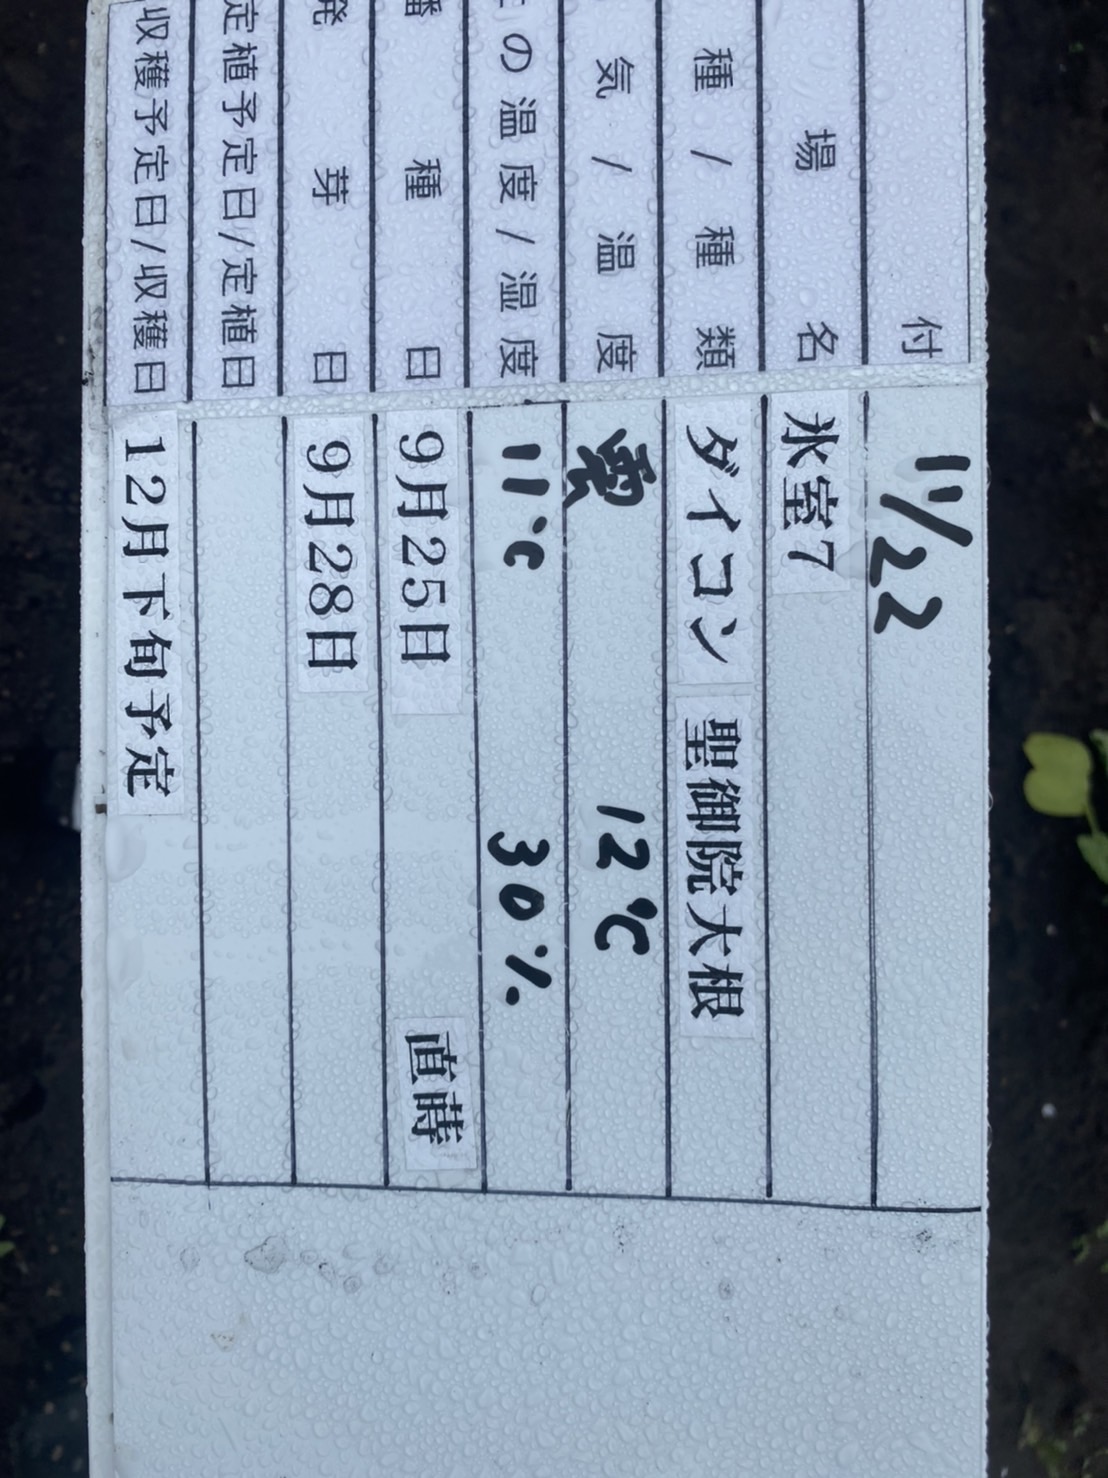 付 11/22
場 名 氷室7
種/種 類 ダイコン 聖御院大根
気/温 度 曇 12℃
の温度/湿度 11℃ 30%
種 日 9月25日 直蒔
発 芽 日 9月28日
定植予定日/定植日
収穫予定日/収穫日 12月下旬予定